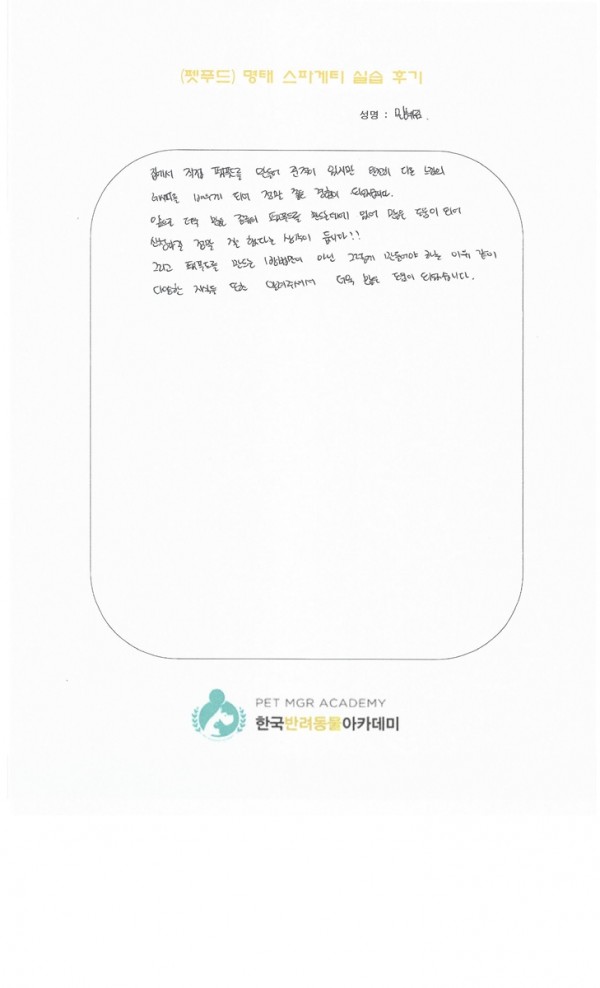 (펫푸드) 명태 스파게티 실습 후기
성명 :
집에서 직접 펫푸드를 만들어 본적이 있지만 다른 느낌의
배우게 되어 정말 좋은 경험이 되었습니다.
앞으로 더욱 많은 펫푸드를 만드는데에 있어 많은 도움이 되어
신청하길 정말 잘 했다는 생각이 듭니다!!
그리고 펫푸드를 만드는 방법만이 아닌 그렇게 만들어야 하는 이유 같이
다양한 지식을 또한 알려주셔서 더욱 많은 도움이 되었습니다.
PET MGR ACADEMY
한국반려동물아카데미